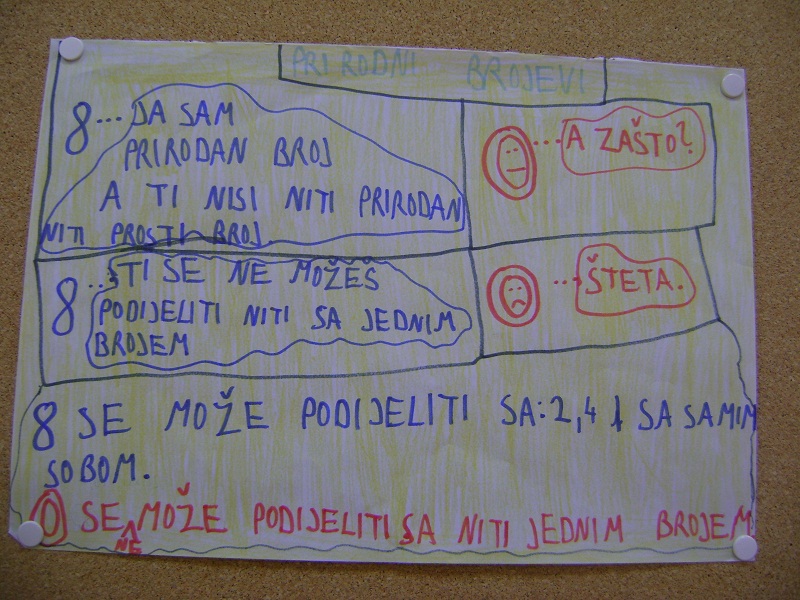 PRIRODNI BROJEVI
8... JA SAM
PRIRODAN BROJ
A TI NISI NITI PRIRODAN
NITI PROSTI BROJ
... A ZAŠTO?
8... TI SE NE MOŽEŠ
PODIJELITI NITI SA JEDNIM
BROJEM
... ŠTETA.
8 SE MOŽE PODIJELITI SA: 2, 4 I SA SAMIM
SOBOM.
0 SE NE MOŽE PODIJELITI SA NITI JEDNIM BROJEM